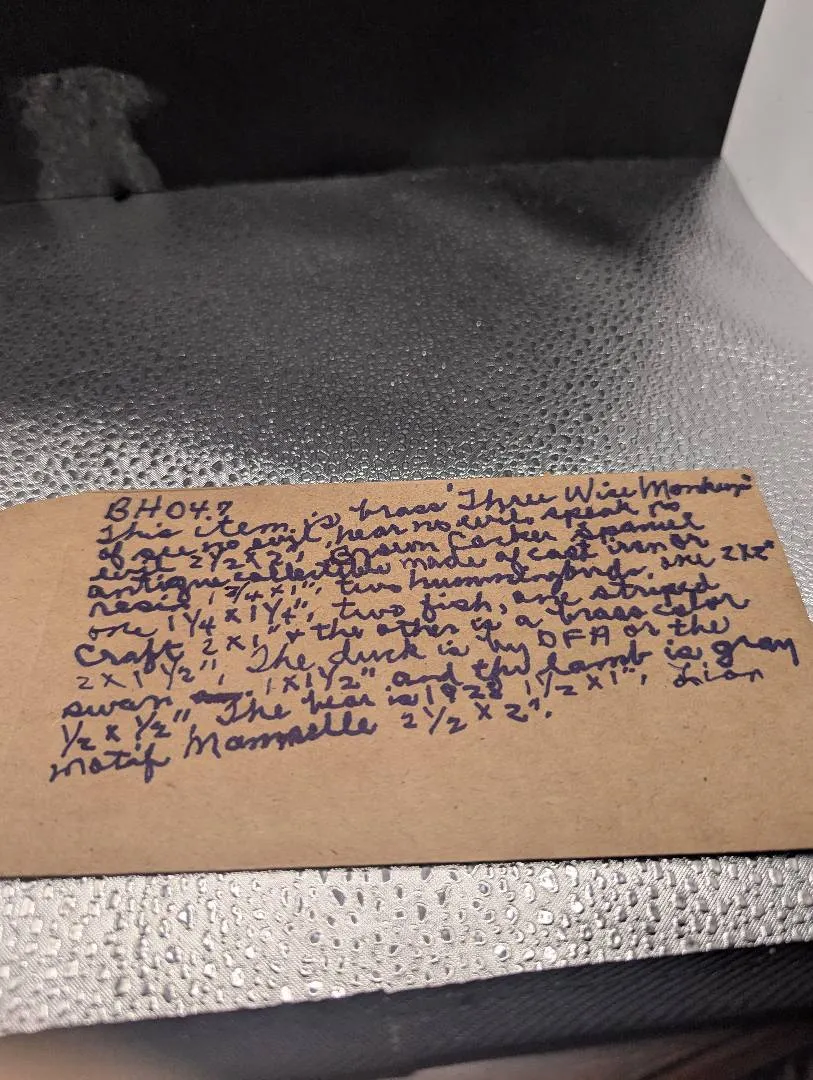 BH04.7
This item is brass "Three Wise Monkeys"
of see no evil, hear no evil, speak no
evil 2 1/2 x 2", Brown Cocker Spaniel
antique collectible made of cast iron or
resin 1 3/4 x 1", two hummingbirds, one 2 x 2"
one 1 1/4 x 1 1/4", two fish, one striped
craft 2 x 1" & the other is a brass color
2 x 1 1/2", The duck is by DFA or the
swan 1 x 1 1/2" and the lamb is gray
1/2 x 1/2" The bear is 1928 1 1/2 x 1", Lion
motif Mamselle 2 1/2 x 2".